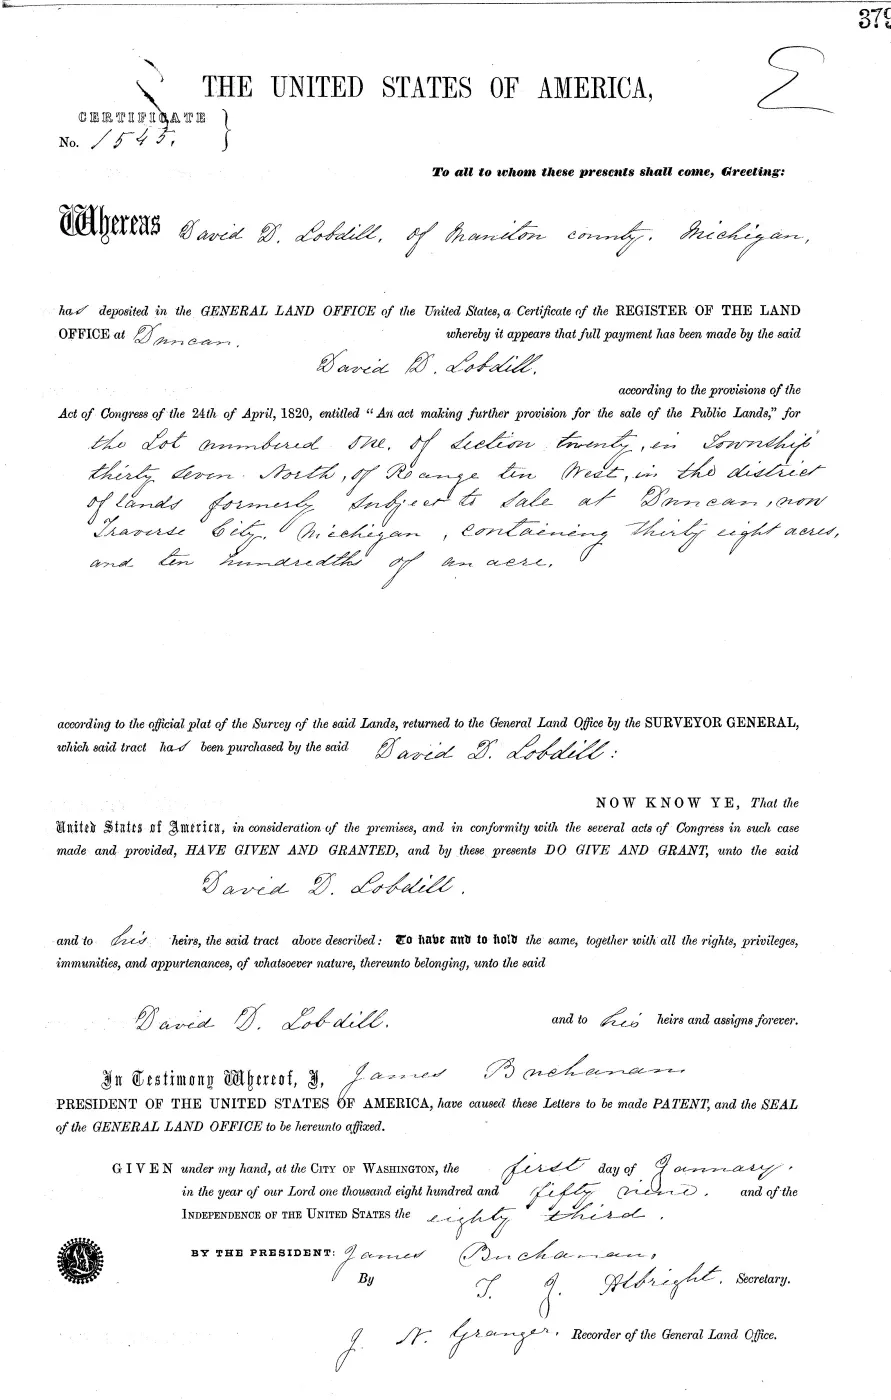 379
THE UNITED STATES OF AMERICA,
CERTIFICATE
No. 1545.
To all to whom these presents shall come, Greeting:
Whereas David D. Lobdill, of Maniton county, Michigan,
has deposited in the GENERAL LAND OFFICE of the United States, a Certificate of the REGISTER OF THE LAND
OFFICE at Duncan. whereby it appears that full payment has been made by the said
David D. Lobdill.
according to the provisions of the
Act of Congress of the 24th of April, 1820, entitled "An act making further provision for the sale of the Public Lands," for
the Lot numbered one, of section twenty, in Township
thirty seven North, of Reange ten West, in the district
of lands formerly subject to sale at Duncan, now
Traverse City, Michigan, containing thirty eight acres,
and ten hundredths of an acre.
according to the official plat of the Survey of the said Lands, returned to the General Land Office by the SURVEYOR GENERAL,
which said tract has been purchased by the said David D. Lobdill:
NOW KNOW YE, That the
United States of America, in consideration of the premises, and in conformity with the several acts of Congress in such case
made and provided, HAVE GIVEN AND GRANTED, and by these presents DO GIVE AND GRANT, unto the said
David D. Lobdill.
and to his heirs, the said tract above described: To have and to hold the same, together with all the rights, privileges,
immunities, and appurtenances, of whatsoever nature, thereunto belonging, unto the said
David D. Lobdill. and to his heirs and assigns forever.
In Testimony Whereof, I, James Buchanan
PRESIDENT OF THE UNITED STATES OF AMERICA, have caused these Letters to be made PATENT, and the SEAL
of the GENERAL LAND OFFICE to be hereunto affixed.
GIVEN under my hand, at the CITY OF WASHINGTON, the first day of January.
in the year of our Lord one thousand eight hundred and fifty nine. and of the
INDEPENDENCE OF THE UNITED STATES the eighty third.
BY THE PRESIDENT: James Buchanan,
By T. J. Albright. Secretary.
J. N. Granger. Recorder of the General Land Office.